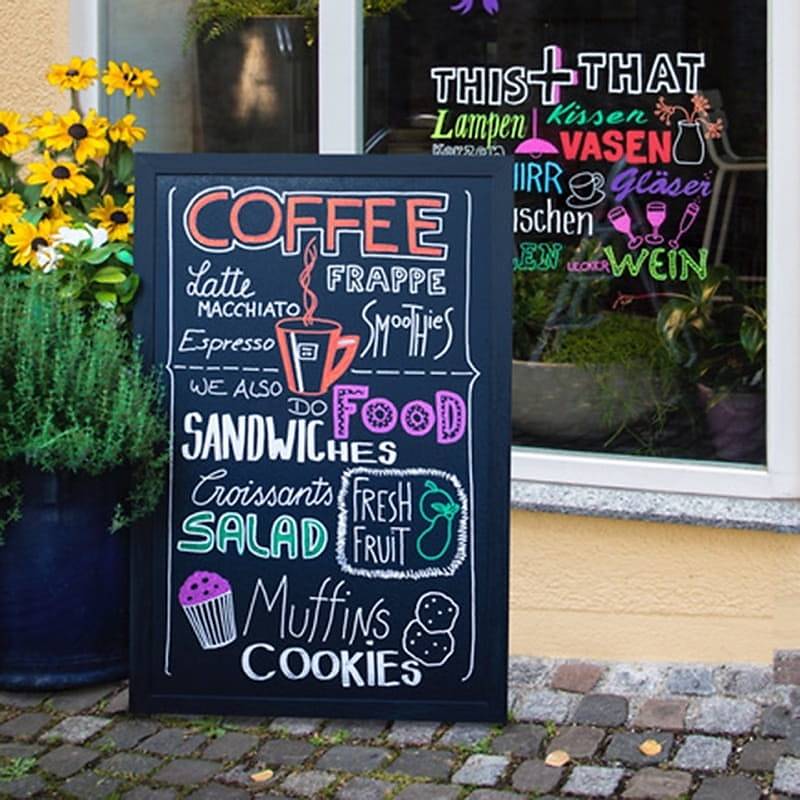 THIS + THAT
Lampen Kissen
Kerzen VASEN
Gläser
WEIN
COFFEE
Latte MACCHIATO FRAPPE
Espresso SMOOTHIES
WE ALSO DO FOOD
SANDWICHES
Croissants
SALAD
FRESH
FRUIT
Muffins
COOKIES